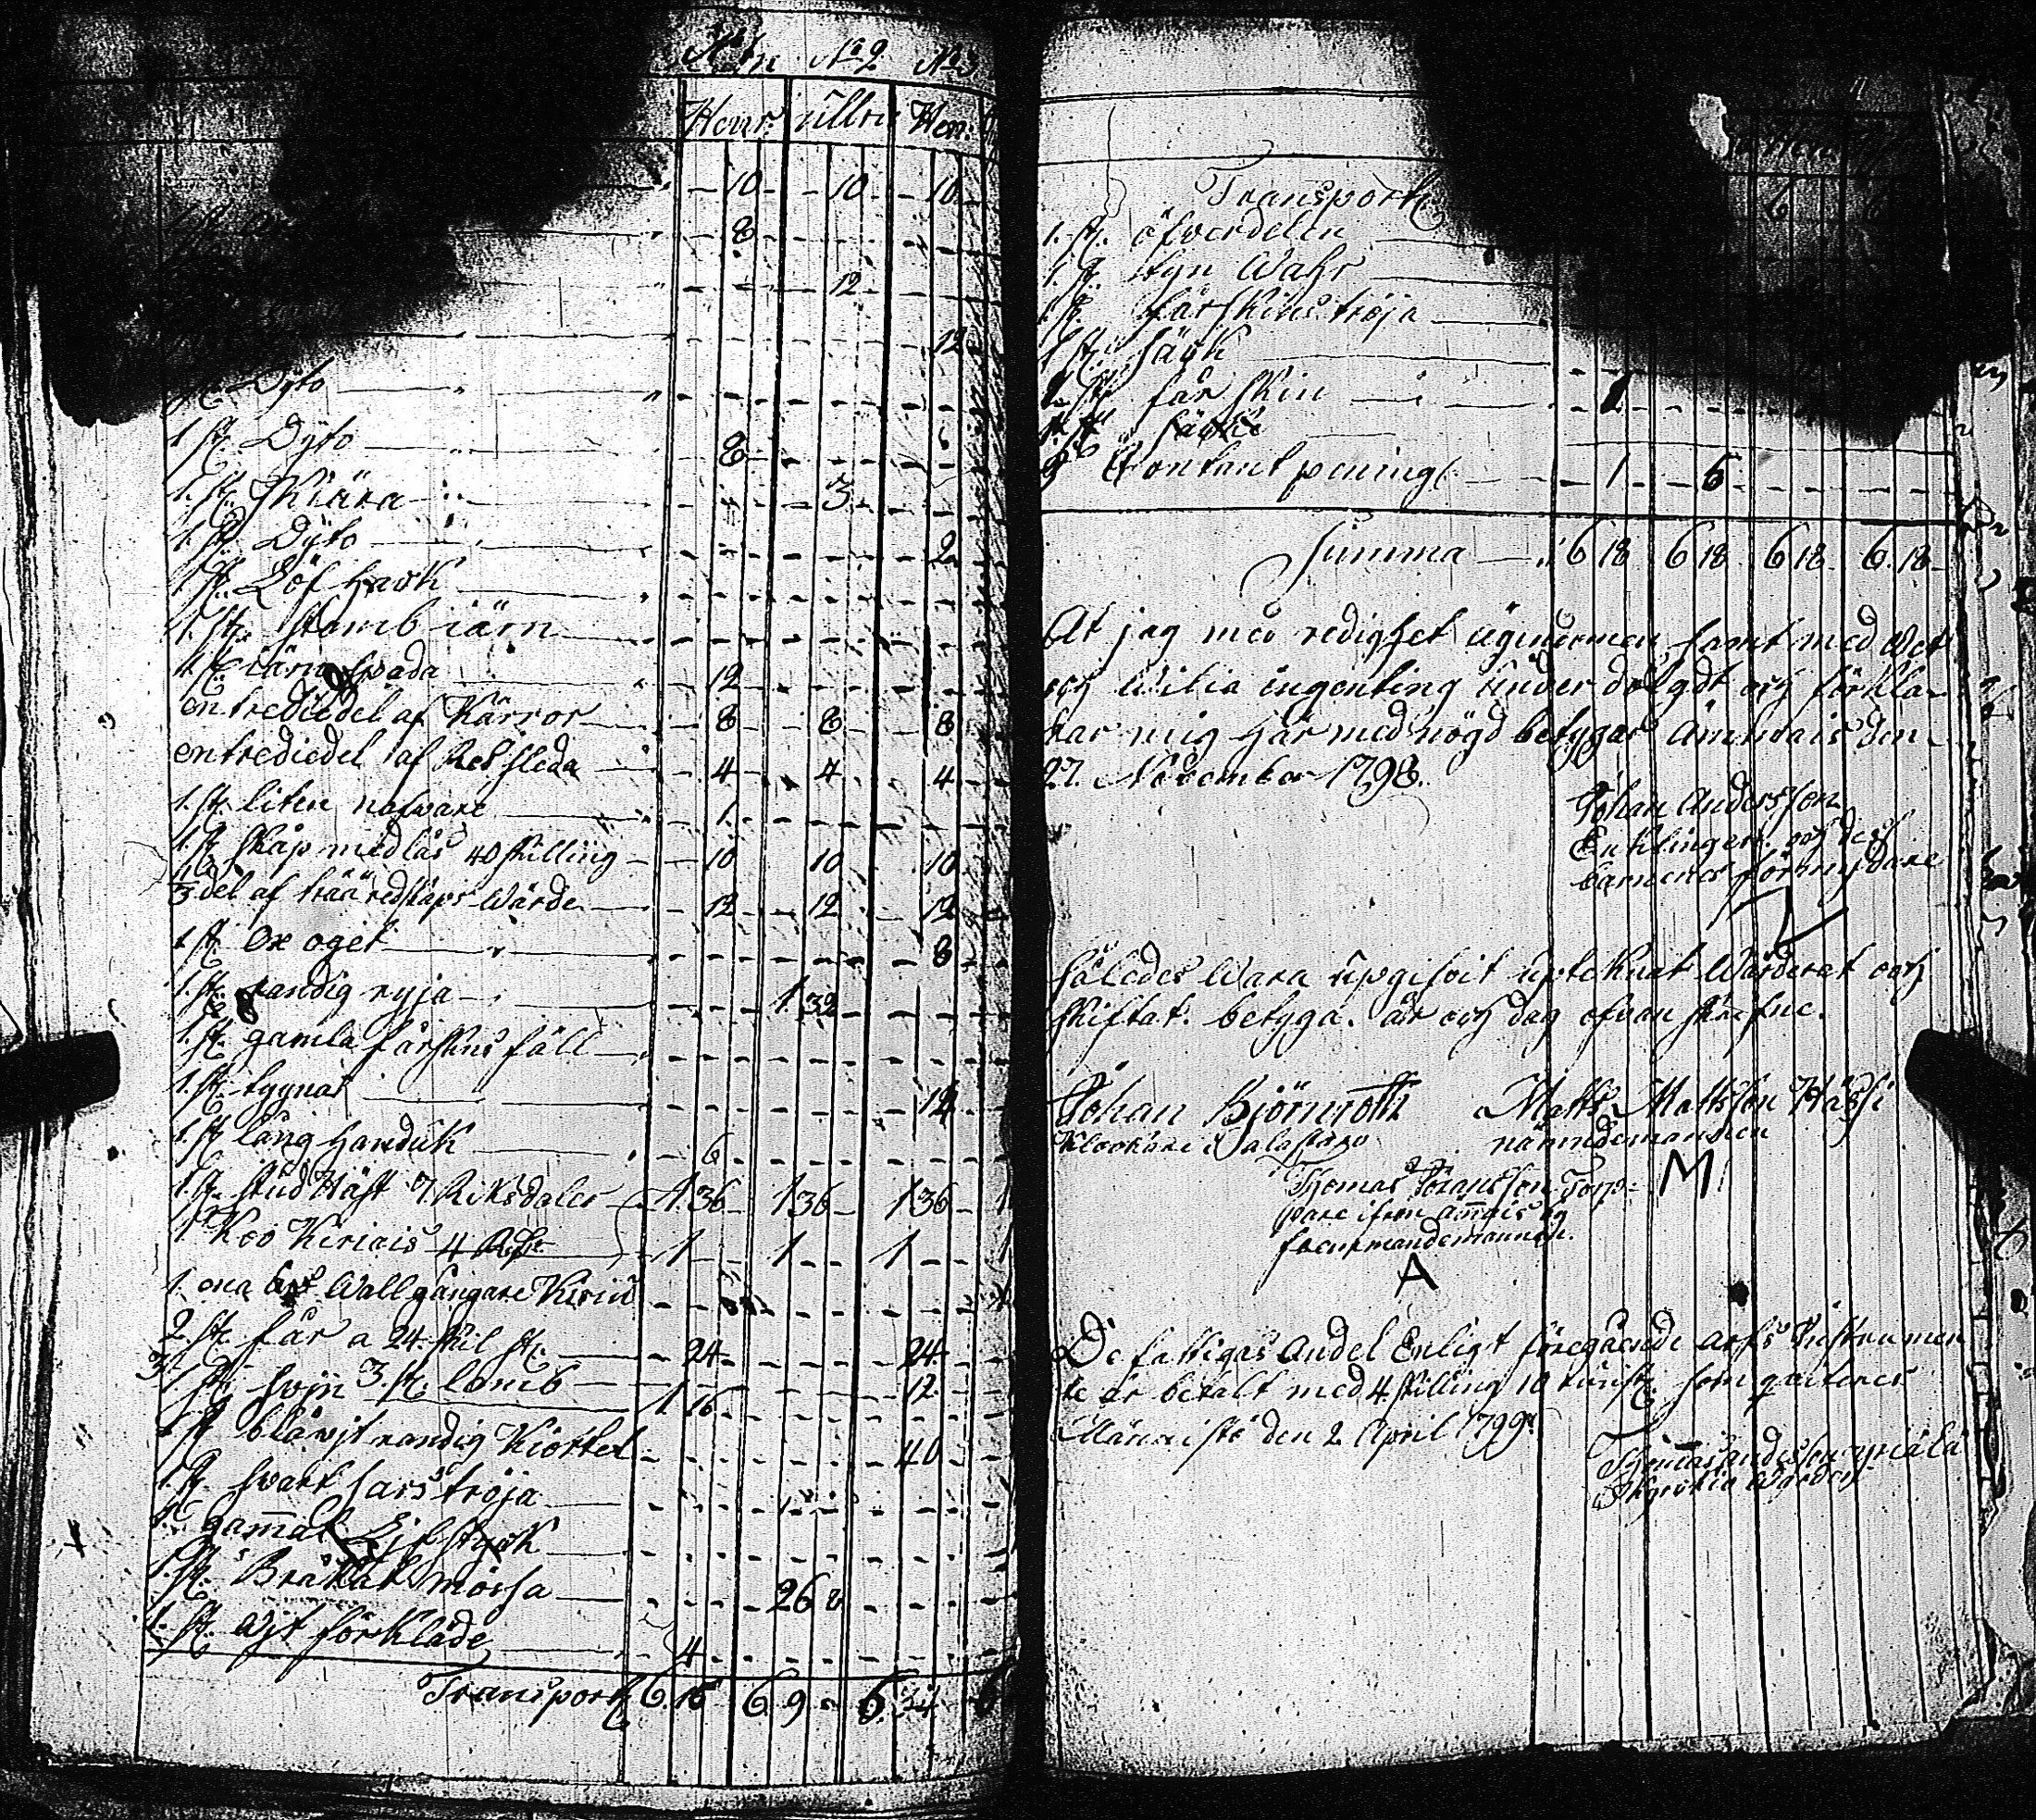 No 2 No 3
Henr: Ullri Hen:
10 10 10
1. st. 8
12
12
st. Dyto
1 st. Dyto 8
1. st. Skiära 3
1 st. Dyto 2
1 st. Löf hack
1. st. stamb järn
1 st. järn spada 12
en trediedel af Kärror 8 8 8
en trediedel af Ref sleda 4 4 4
1. st. liten nafvare 1
1. st. skåp med lås 40 skilling 10 10 10
3 del af trää redskaps Wärde 12 12 12
1 st. Ox oget 8
1. st. randig ryja 1 32
1. st. gamla fårskins fäll
1. st. tygnat 12
1. st. lång handuk 6
1. st. stud Häst 7 Riksdaler 1.36 1 36 1 36
1 Koo Kiriais 4 Rdr 1 1 1
1. Wallgångare
2. st. får a 24 skil st. 24 24
1 st. swin 3 st. lamb 1 16 12
1 st. blå wit randig Kiortel 40
1 st. swart sars tröja
1. gam̄al Lifstyck
1. st. Bräkat mössa 26
1. st. wit förkläde 4
Transport 6.15 6 9 6.34
Transport 6 6
1. st. öfverdelen
1. st. tyn Wahr
1 st. fårskins tröja
1 st. säck
st. får skin
Contant pening 1 5
Summa 6 18 6 18 6 18 6.18
At jag med redighet ägendomen samt med Wet
och Wilia ingenting under dolgdt och förkla-
rar mig här med nögd betygar Ämmais den
27. November 1798.
Johan Andersson
Enklingen och des
barnenes förmyndare
Således Wara upgifvit uptecknat Wärderat och
skiftat. betyga. år och dag ofvan skrefne.
Johan Björnroth Matts Mattsson Hässi
Klockare i nämndemannen
Thomas Johansson Torp- M
pare ifrån am̄ais
A
De fattigas Andel Enligt föregående arfs Instrumen
te är betalt med 4. skilling 10 runst. som qviteres
den 2. April 1799.
Thomas Andersson